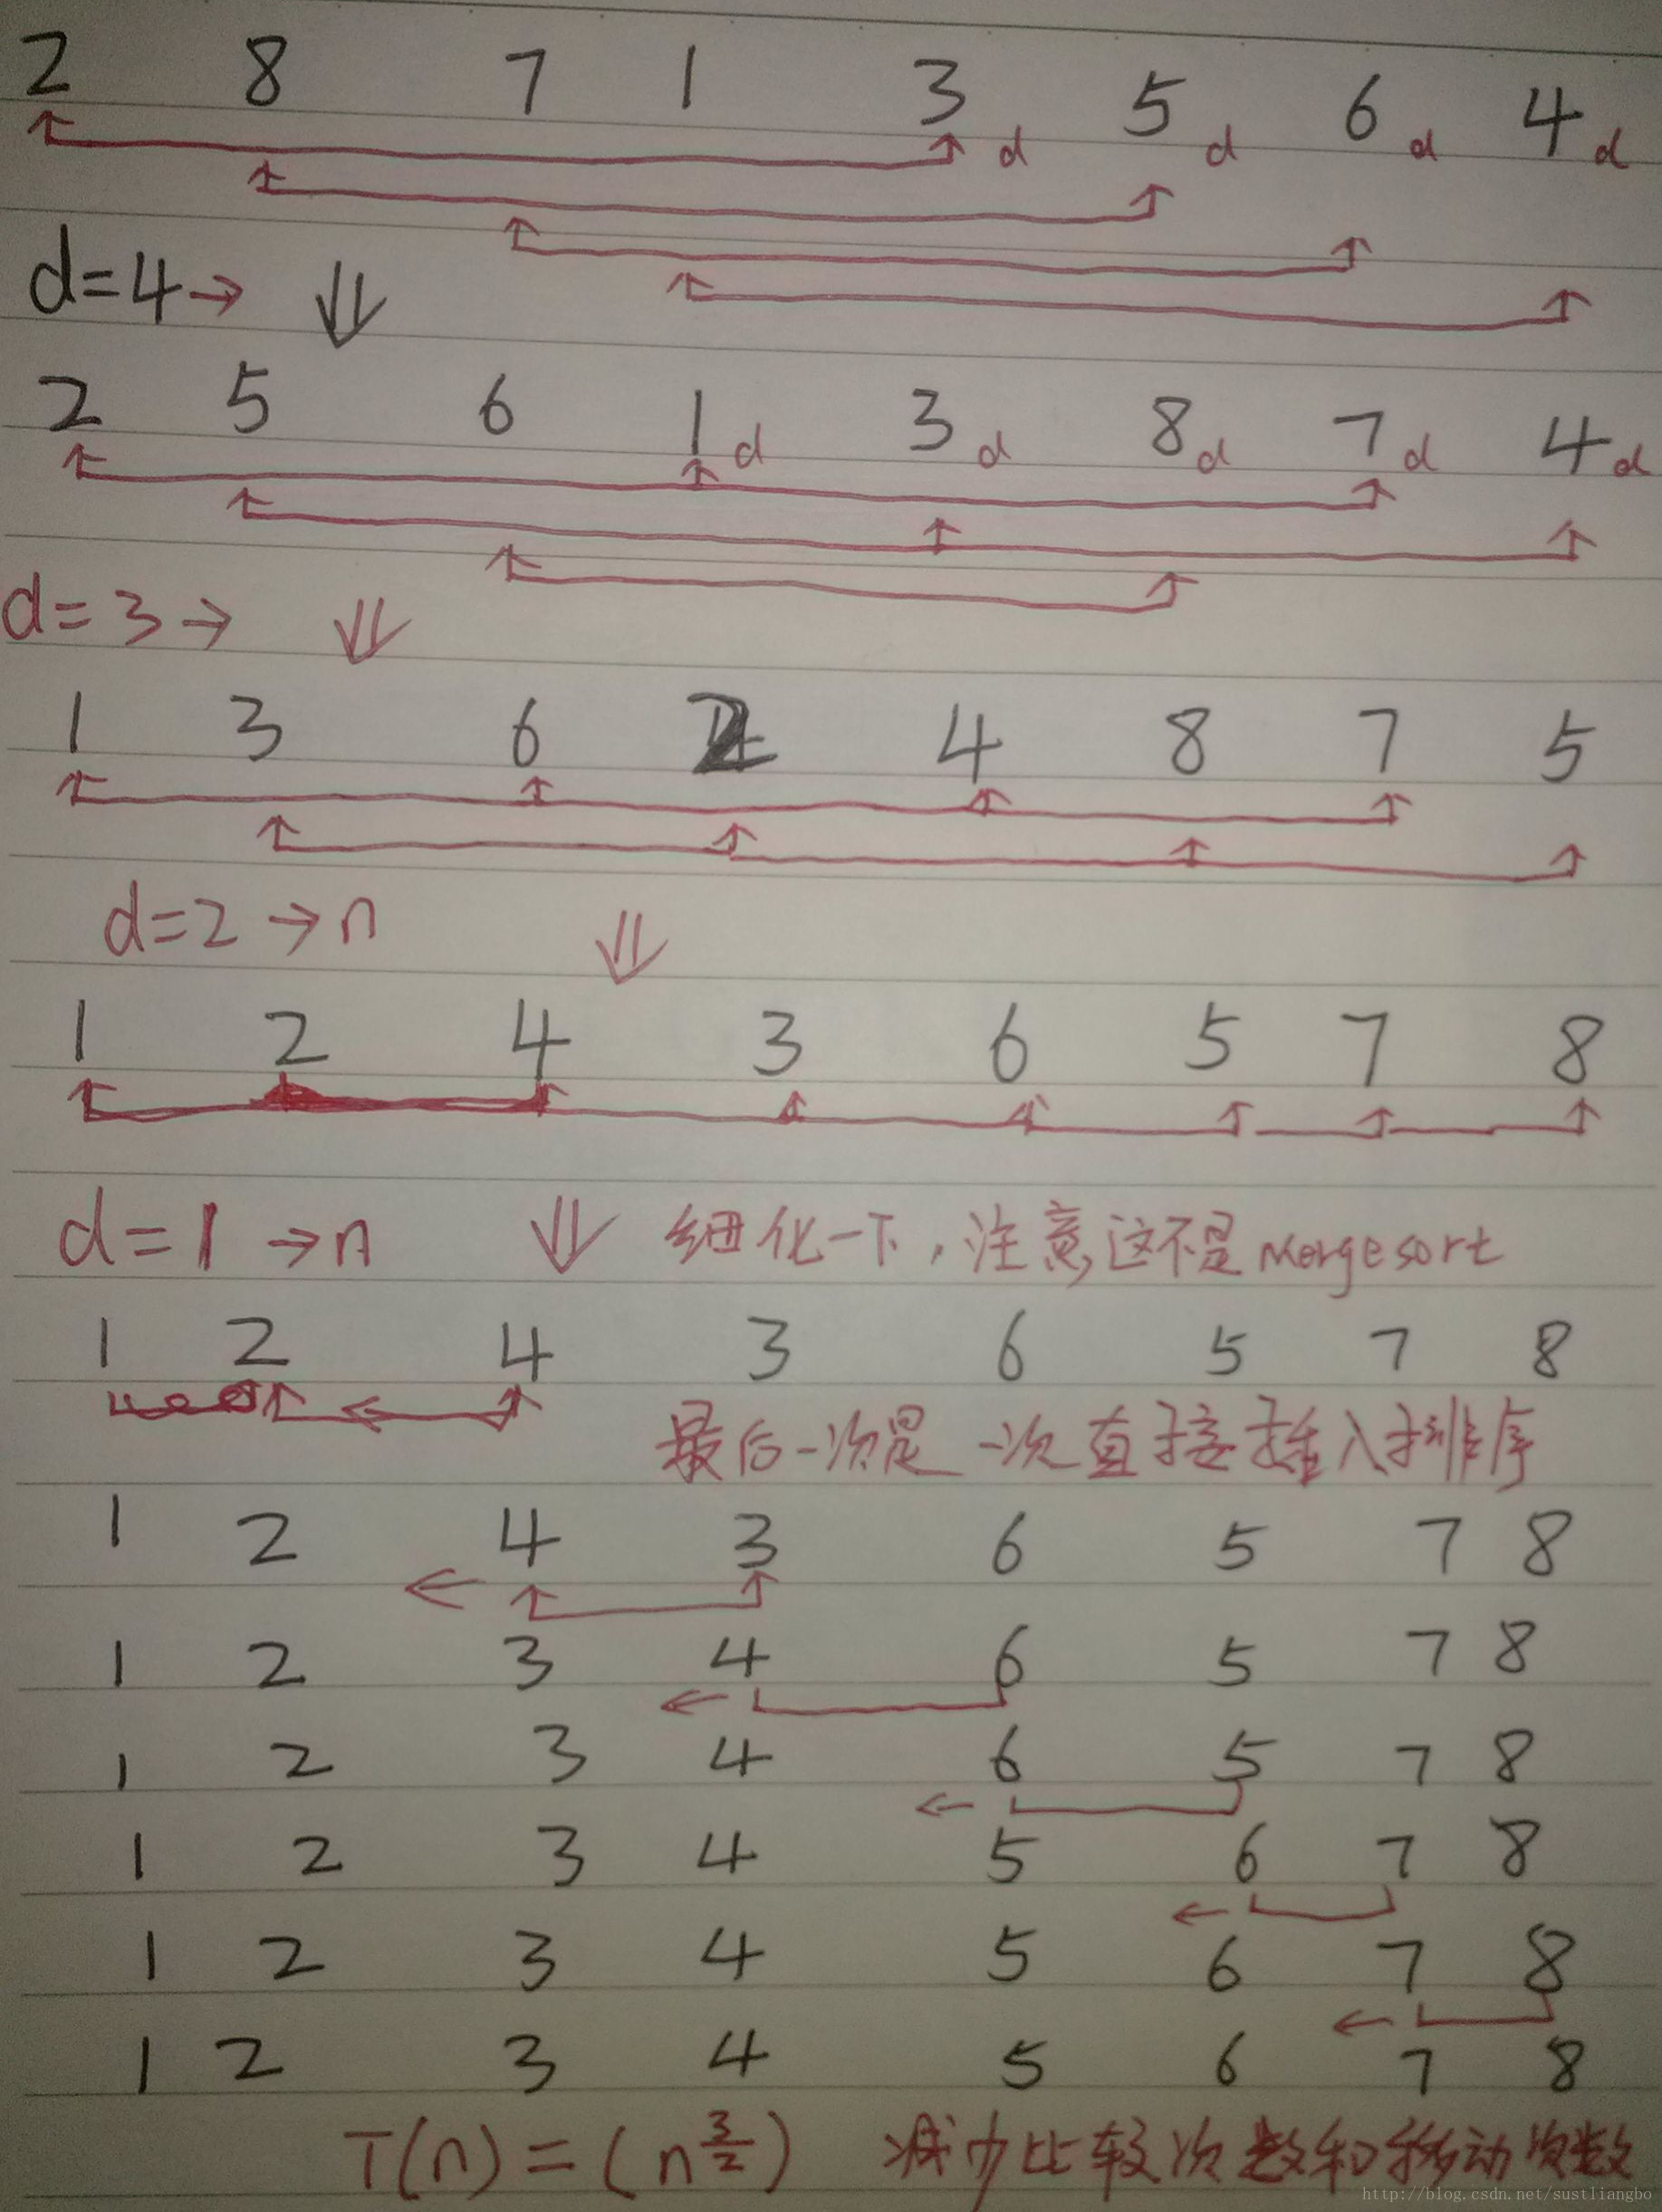 2 8 7 1 3 5 6 4
d d d d
d=4→ ⇓
2 5 6 1 3 8 7 4
d d d d d
d=3→ ⇓
1 3 6 2 4 8 7 5
d=2→n ⇓
1 2 4 3 6 5 7 8
d=1→n ⇓ 细化一下，注意这不是Mergesort
1 2 4 3 6 5 7 8
最后一次是一次直接插入排序
1 2 4 3 6 5 7 8
1 2 3 4 6 5 7 8
1 2 3 4 6 5 7 8
1 2 3 4 5 6 7 8
1 2 3 4 5 6 7 8
1 2 3 4 5 6 7 8
T(n)=(n^{3/2}) 减少比较次数和移动次数
http://blog.csdn.net/sustliangbo